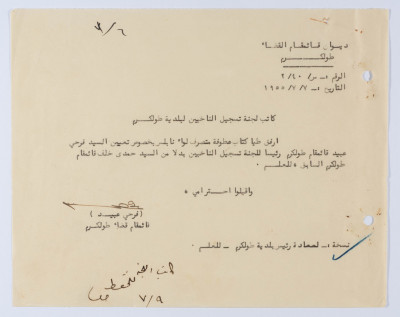 ٣/٦
ديوان قائمقام القضاء
طولكرم
الرقم :- س ر/ ٢/٤٠
التاريخ :- ١٩٥٥/٧/٧
كاتب لجنة تسجيل الناخبين لبلدية طولكرم
ارفق طيا كتاب عطوفة متصرف لواء نابلس بخصوص تعيين السيد فرحي
عبيد قائمقام طولكرم رئيسا للجنة تسجيل الناخبين بدلا من السيد حمدى خلف قائمقام
طولكرم السابق للعلم
واقبلوا احترامي
( فرحي عبيد )
قائمقام قضاء طولكرم
نسخة :- لسعادة رئيس بلدية طولكرم - للعلم
كاتب اللجنة للحفظ
٧/٩